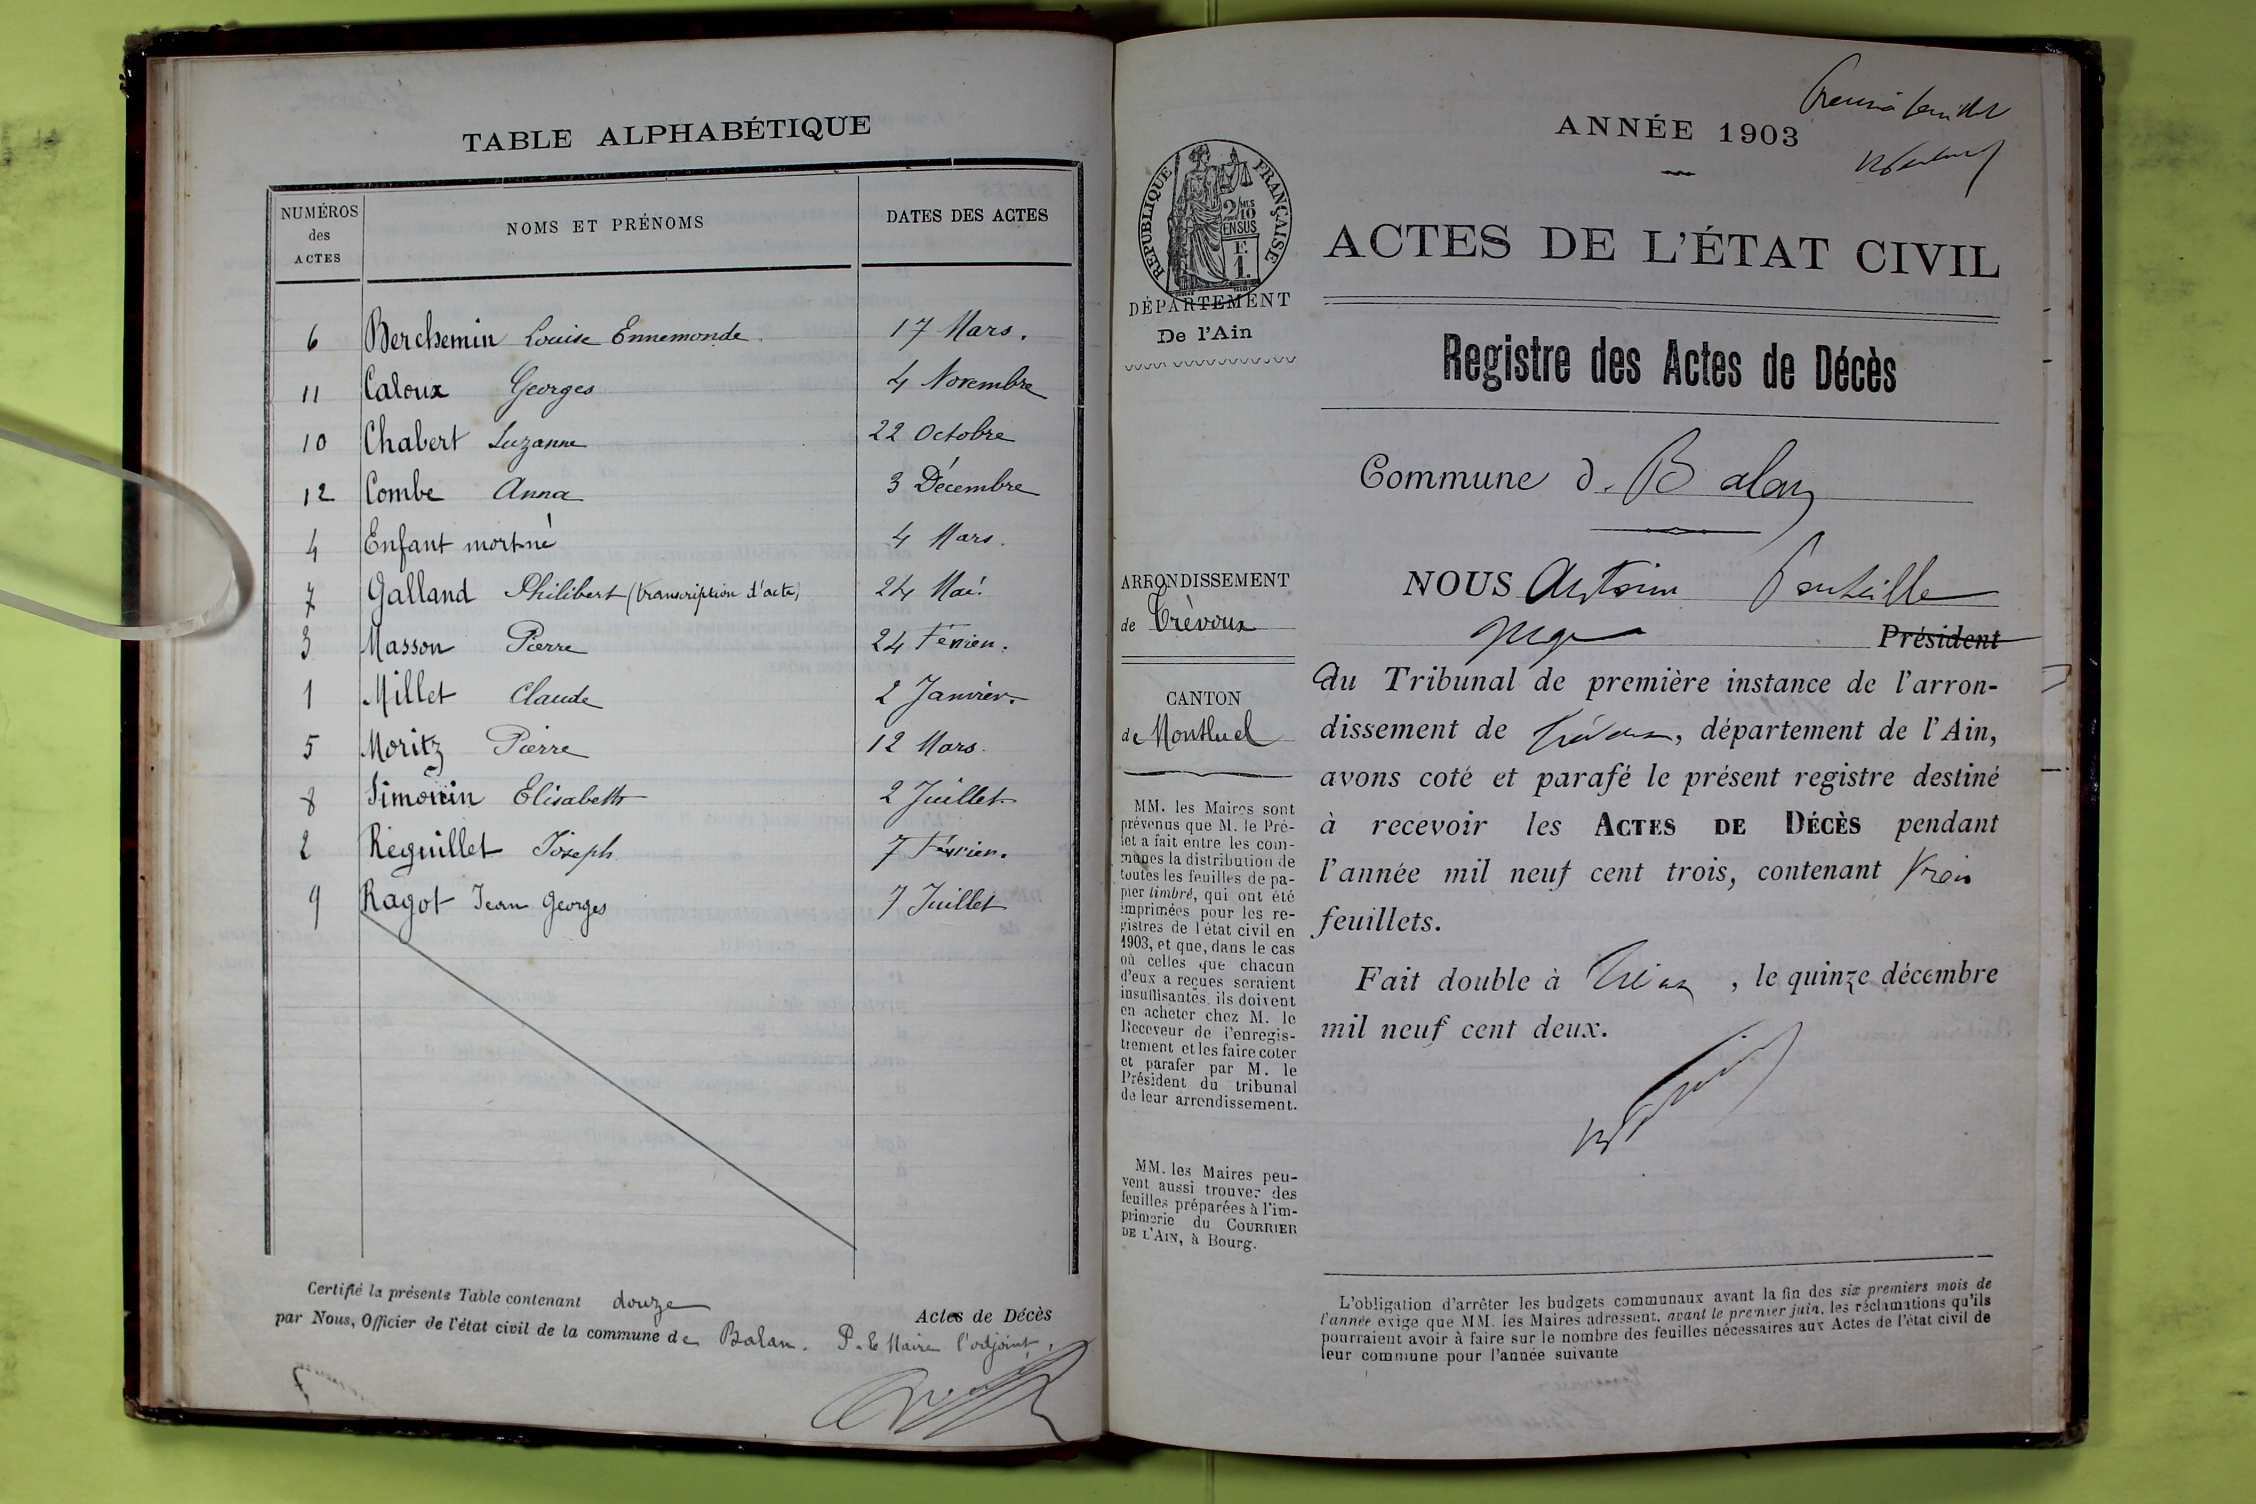 TABLE ALPHABÉTIQUE
NUMÉROS des ACTES NOMS ET PRÉNOMS DATES DES ACTES
6 Berchemin Louise Ennemonde 17 Mars.
11 Caloux Georges 4 Novembre
10 Chabert Suzanne 22 Octobre
12 Combe Anna 3 Décembre
4 Enfant mort-né 4 Mars.
7 Galland Philibert (transcription d'acte) 24 Mai.
3 Masson Pierre 24 Février.
1 Millet Claude 2 Janvier.
5 Moritz Pierre 12 Mars.
8 Simonin Elisabeth 2 Juillet
2 Réguillet Joseph 7 Février.
9 Ragot Jean Georges 7 Juillet
Certifié la présente Table contenant douze Actes de Décès
par Nous, Officier de l'état civil de la commune de Balan. P. le Maire l'adjoint,
Premier feuillet
ANNÉE 1903
RÉPUBLIQUE FRANÇAISE
2/10
EN SUS
1 F.
ACTES DE L'ÉTAT CIVIL
DÉPARTEMENT
De l'Ain
Registre des Actes de Décès
Commune d. Balan
ARRONDISSEMENT
de Trévoux
CANTON
de Montluel
MM. les Maires sont
prévenus que M. le Pré-
fet a fait entre les com-
munes la distribution de
toutes les feuilles de pa-
pier timbré, qui ont été
imprimées pour les re-
gistres de l'état civil en
1903, et que, dans le cas
où celles que chacun
d'eux a reçues seraient
insuffisantes, ils doivent
en acheter chez M. le
Receveur de l'enregis-
trement et les faire coter
et parafer par M. le
Président du tribunal
de leur arrondissement.
MM. les Maires peu-
vent aussi trouver des
feuilles préparées à l'im-
primerie du COURRIER
DE L'AIN, à Bourg.
NOUS Antoine Ponteille
Juge Président
du Tribunal de première instance de l'arron-
dissement de Trévoux, département de l'Ain,
avons coté et parafé le présent registre destiné
à recevoir les ACTES DE DÉCÈS pendant
l'année mil neuf cent trois, contenant trois
feuillets.
Fait double à Trévoux, le quinze décembre
mil neuf cent deux.
L'obligation d'arrêter les budgets communaux avant la fin des six premiers mois de
l'année exige que MM. les Maires adressent, avant le premier juin, les réclamations qu'ils
pourraient avoir à faire sur le nombre des feuilles nécessaires aux Actes de l'état civil de
leur commune pour l'année suivante